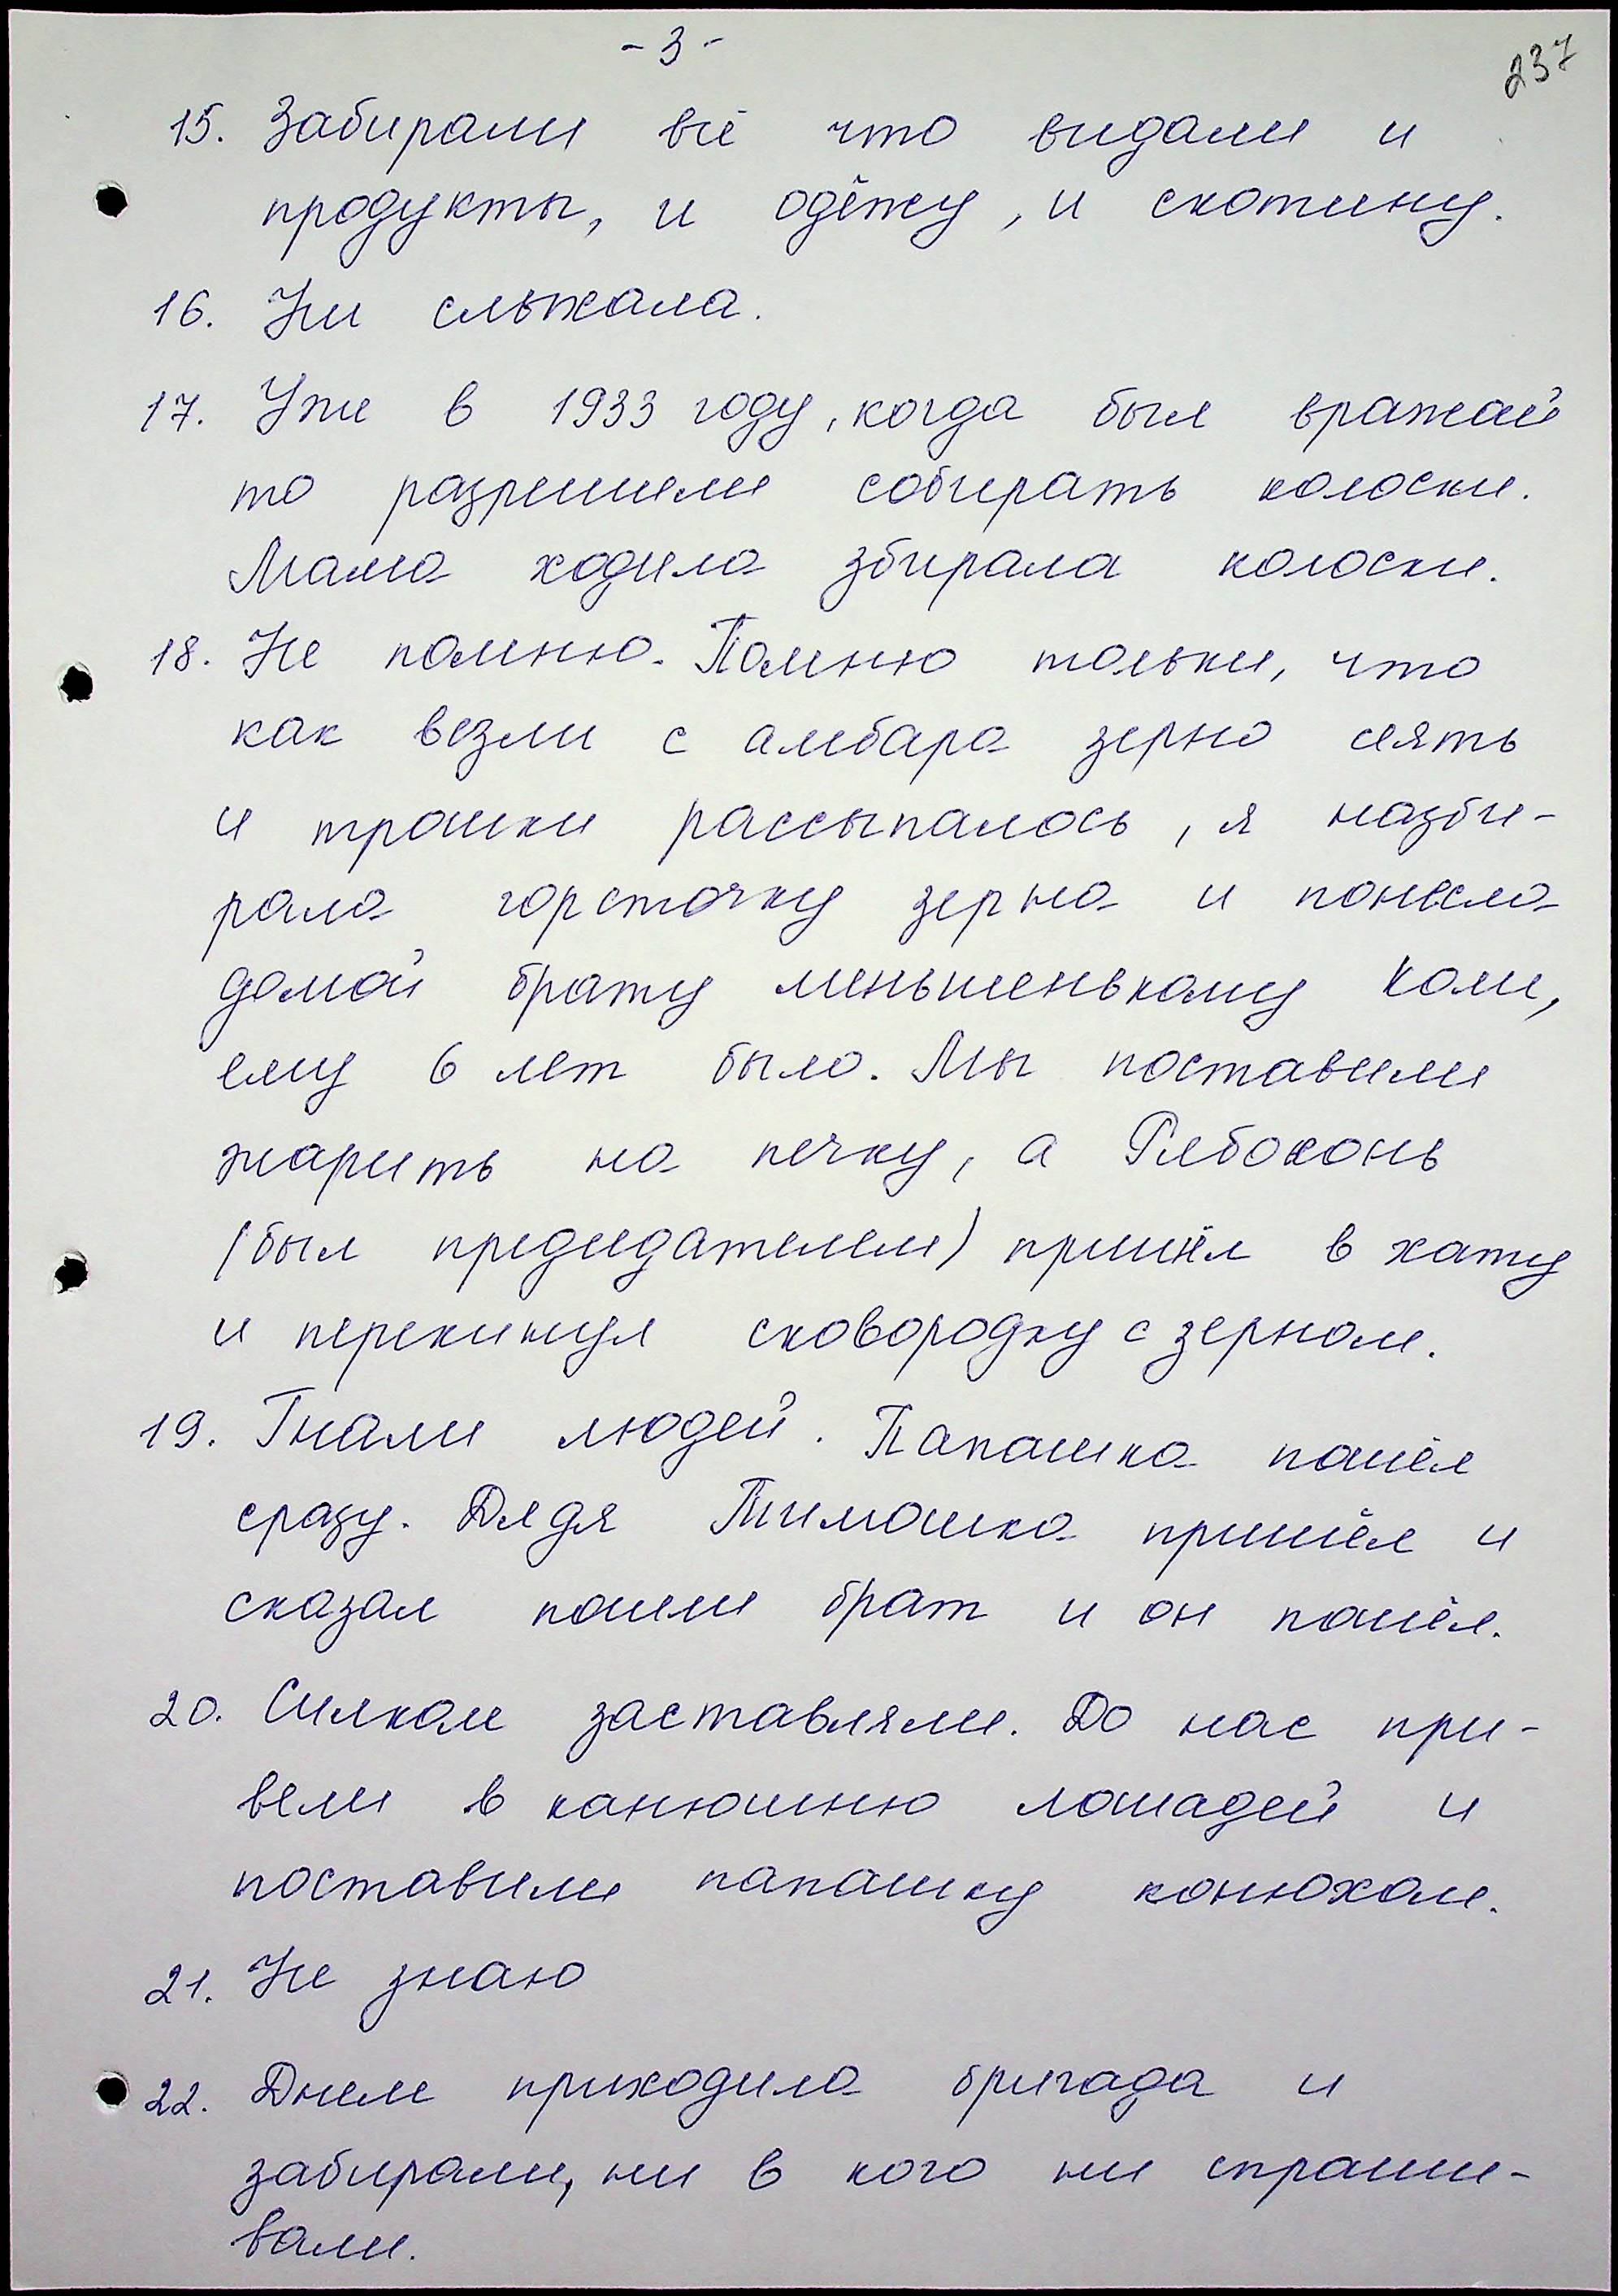 - 3 -
237
15. Забирали всё что видали и
продукты, и одёжу, и скотину.
16. Ни слыхала.
17. Уже в 1933 году, когда был вражай
то разрешили собирать колоски.
Мама ходила збирала колоски.
18. Не помню. Помню тольки, что
как везли с амбара зерно сеять
и трошки рассыпалось, я назби-
рала горсточку зерна и понесла
домой брату меньшенькому Коли,
ему 6 лет было. Мы поставили
жарить на печку, а Рябоконь
(был предидателем) пришёл в хату
и перекинул сковородку с зерном.
19. Гнали людей. Папашка пошёл
сразу. Дядя Тимошка пришёл и
сказал пошли брат и он пошёл.
20. Силком заставляли. До нас при-
вели в канюшню лошадей и
поставили папашку конюхом.
21. Не знаю
22. Днем приходила бригада и
забирали, ни в кого ни спраши-
вали.